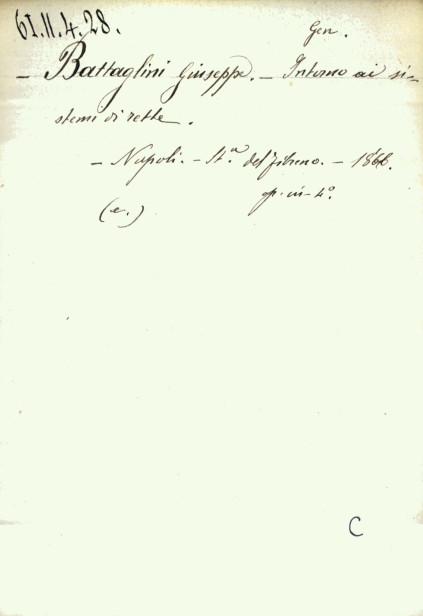 61.11.4.28.
Gen.
— Battaglini Giuseppe. — Intorno ai si-
stemi di rette.
— Napoli. — St.ª del Fibreno. — 1866.
op. in-4°
(e.)
C